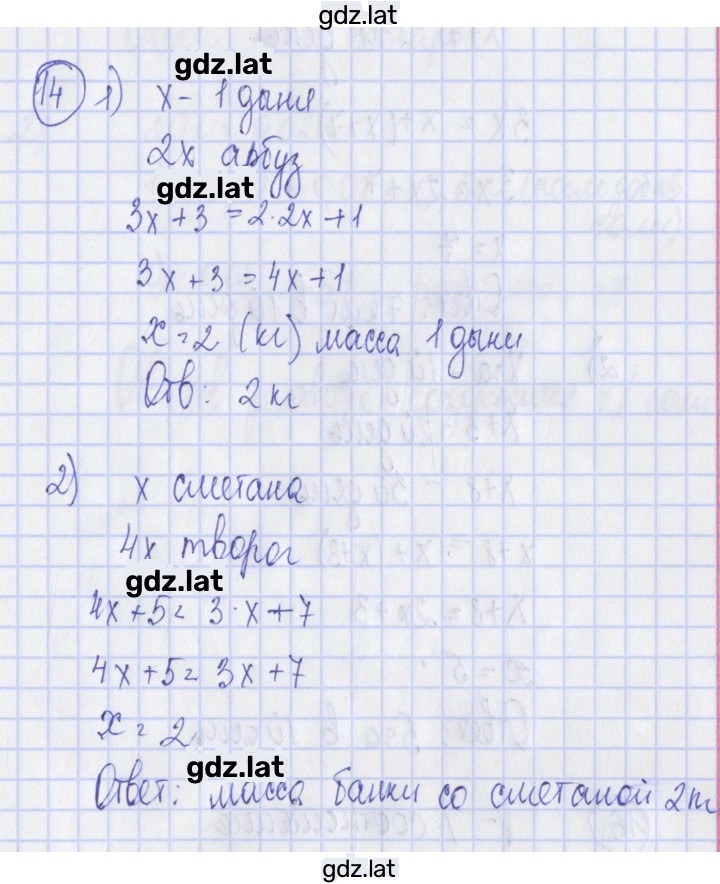 gdz.lat
gdz.lat
14 1) x - 1 дыня
2x арбуз
gdz.lat
3x + 3 = 2·2x + 1
3x + 3 = 4x + 1
x = 2 (кг) масса 1 дыни
Отв: 2 кг
2) x сметана
4x творог
gdz.lat
4x + 5 = 3·x + 7
4x + 5 = 3x + 7
x = 2
gdz.lat
Ответ: масса банки со сметаной 2кг
gdz.lat